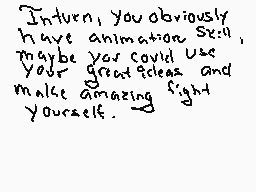 Inturn, you obviously
have animation skill,
maybe you could use
your great ideas and
make amazing fight
yourself.